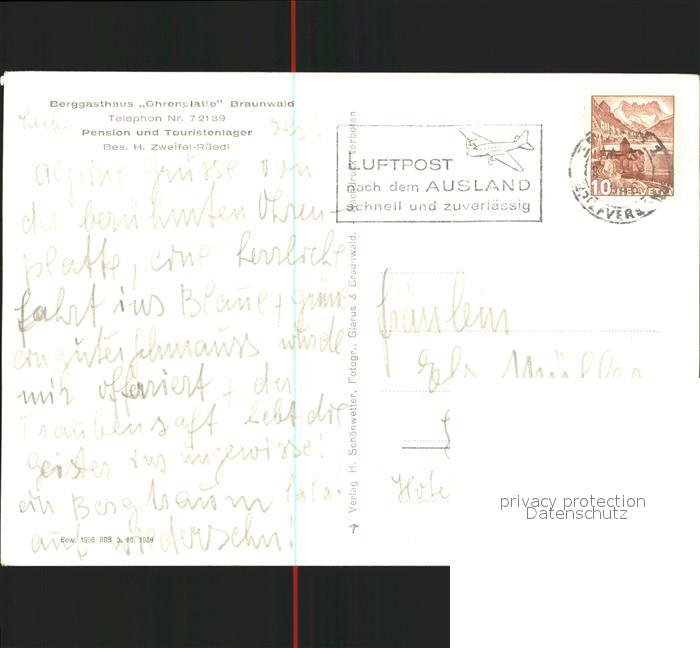 Berggasthaus „Ohrenplatte" Braunwald
Telephon Nr. 72139
Pension und Touristenlager
Bes. H. Zweifel-Rüedi
Alpine Grüsse von
der berühmten Ohren-
platte, eine herrliche
fahrt ins Blaue + grüne
ein guter schmauss wurde
mir offeriert + der
Traubensaft hebt die
Geister ins ungewisse!
ein Bergtraum lala.
auf Wiedersehn!
Bew. 1956 BRB 3. 10. 1939
Verlag H. Schönwetter, Fotogr., Glarus & Braunwald. Nachdruck verboten
LUFTPOST
nach dem AUSLAND
schnell und zuverlässig
10 HELVETIA
Fräulein
Els Müller
Hote
privacy protection
Datenschutz